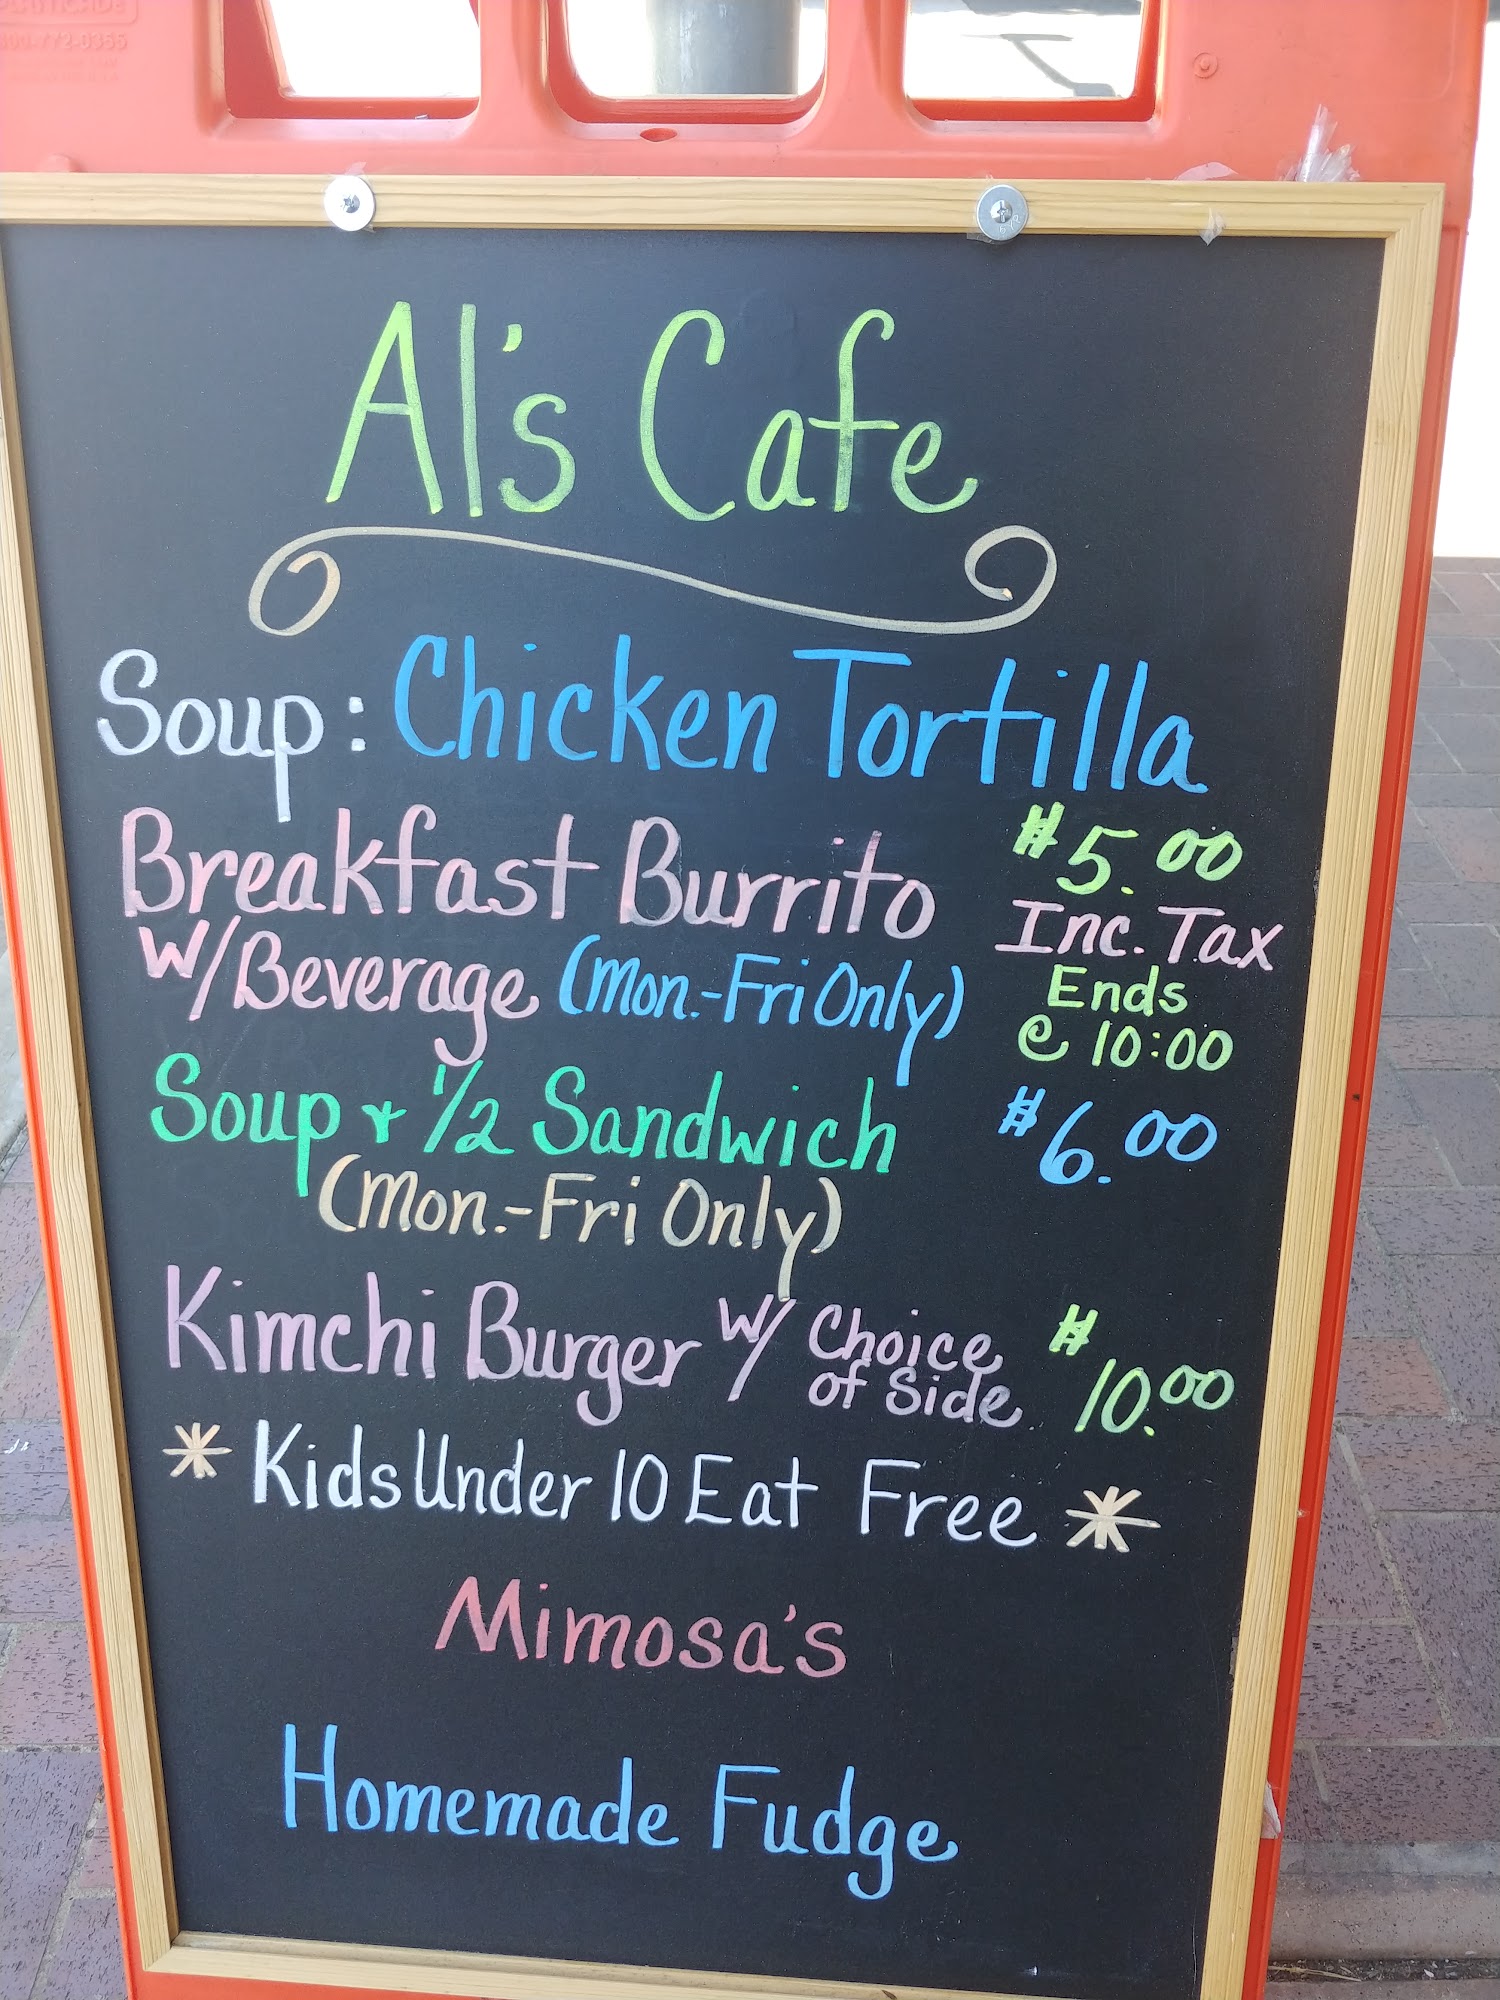 800-772-0355
Al's Cafe
Soup: Chicken Tortilla
Breakfast Burrito $5.00
W/Beverage (Mon.-Fri Only) Inc. Tax
Ends
@ 10:00
Soup + 1/2 Sandwich $6.00
(Mon.-Fri Only)
Kimchi Burger W/ Choice of Side $10.00
* Kids Under 10 Eat Free *
Mimosa's
Homemade Fudge